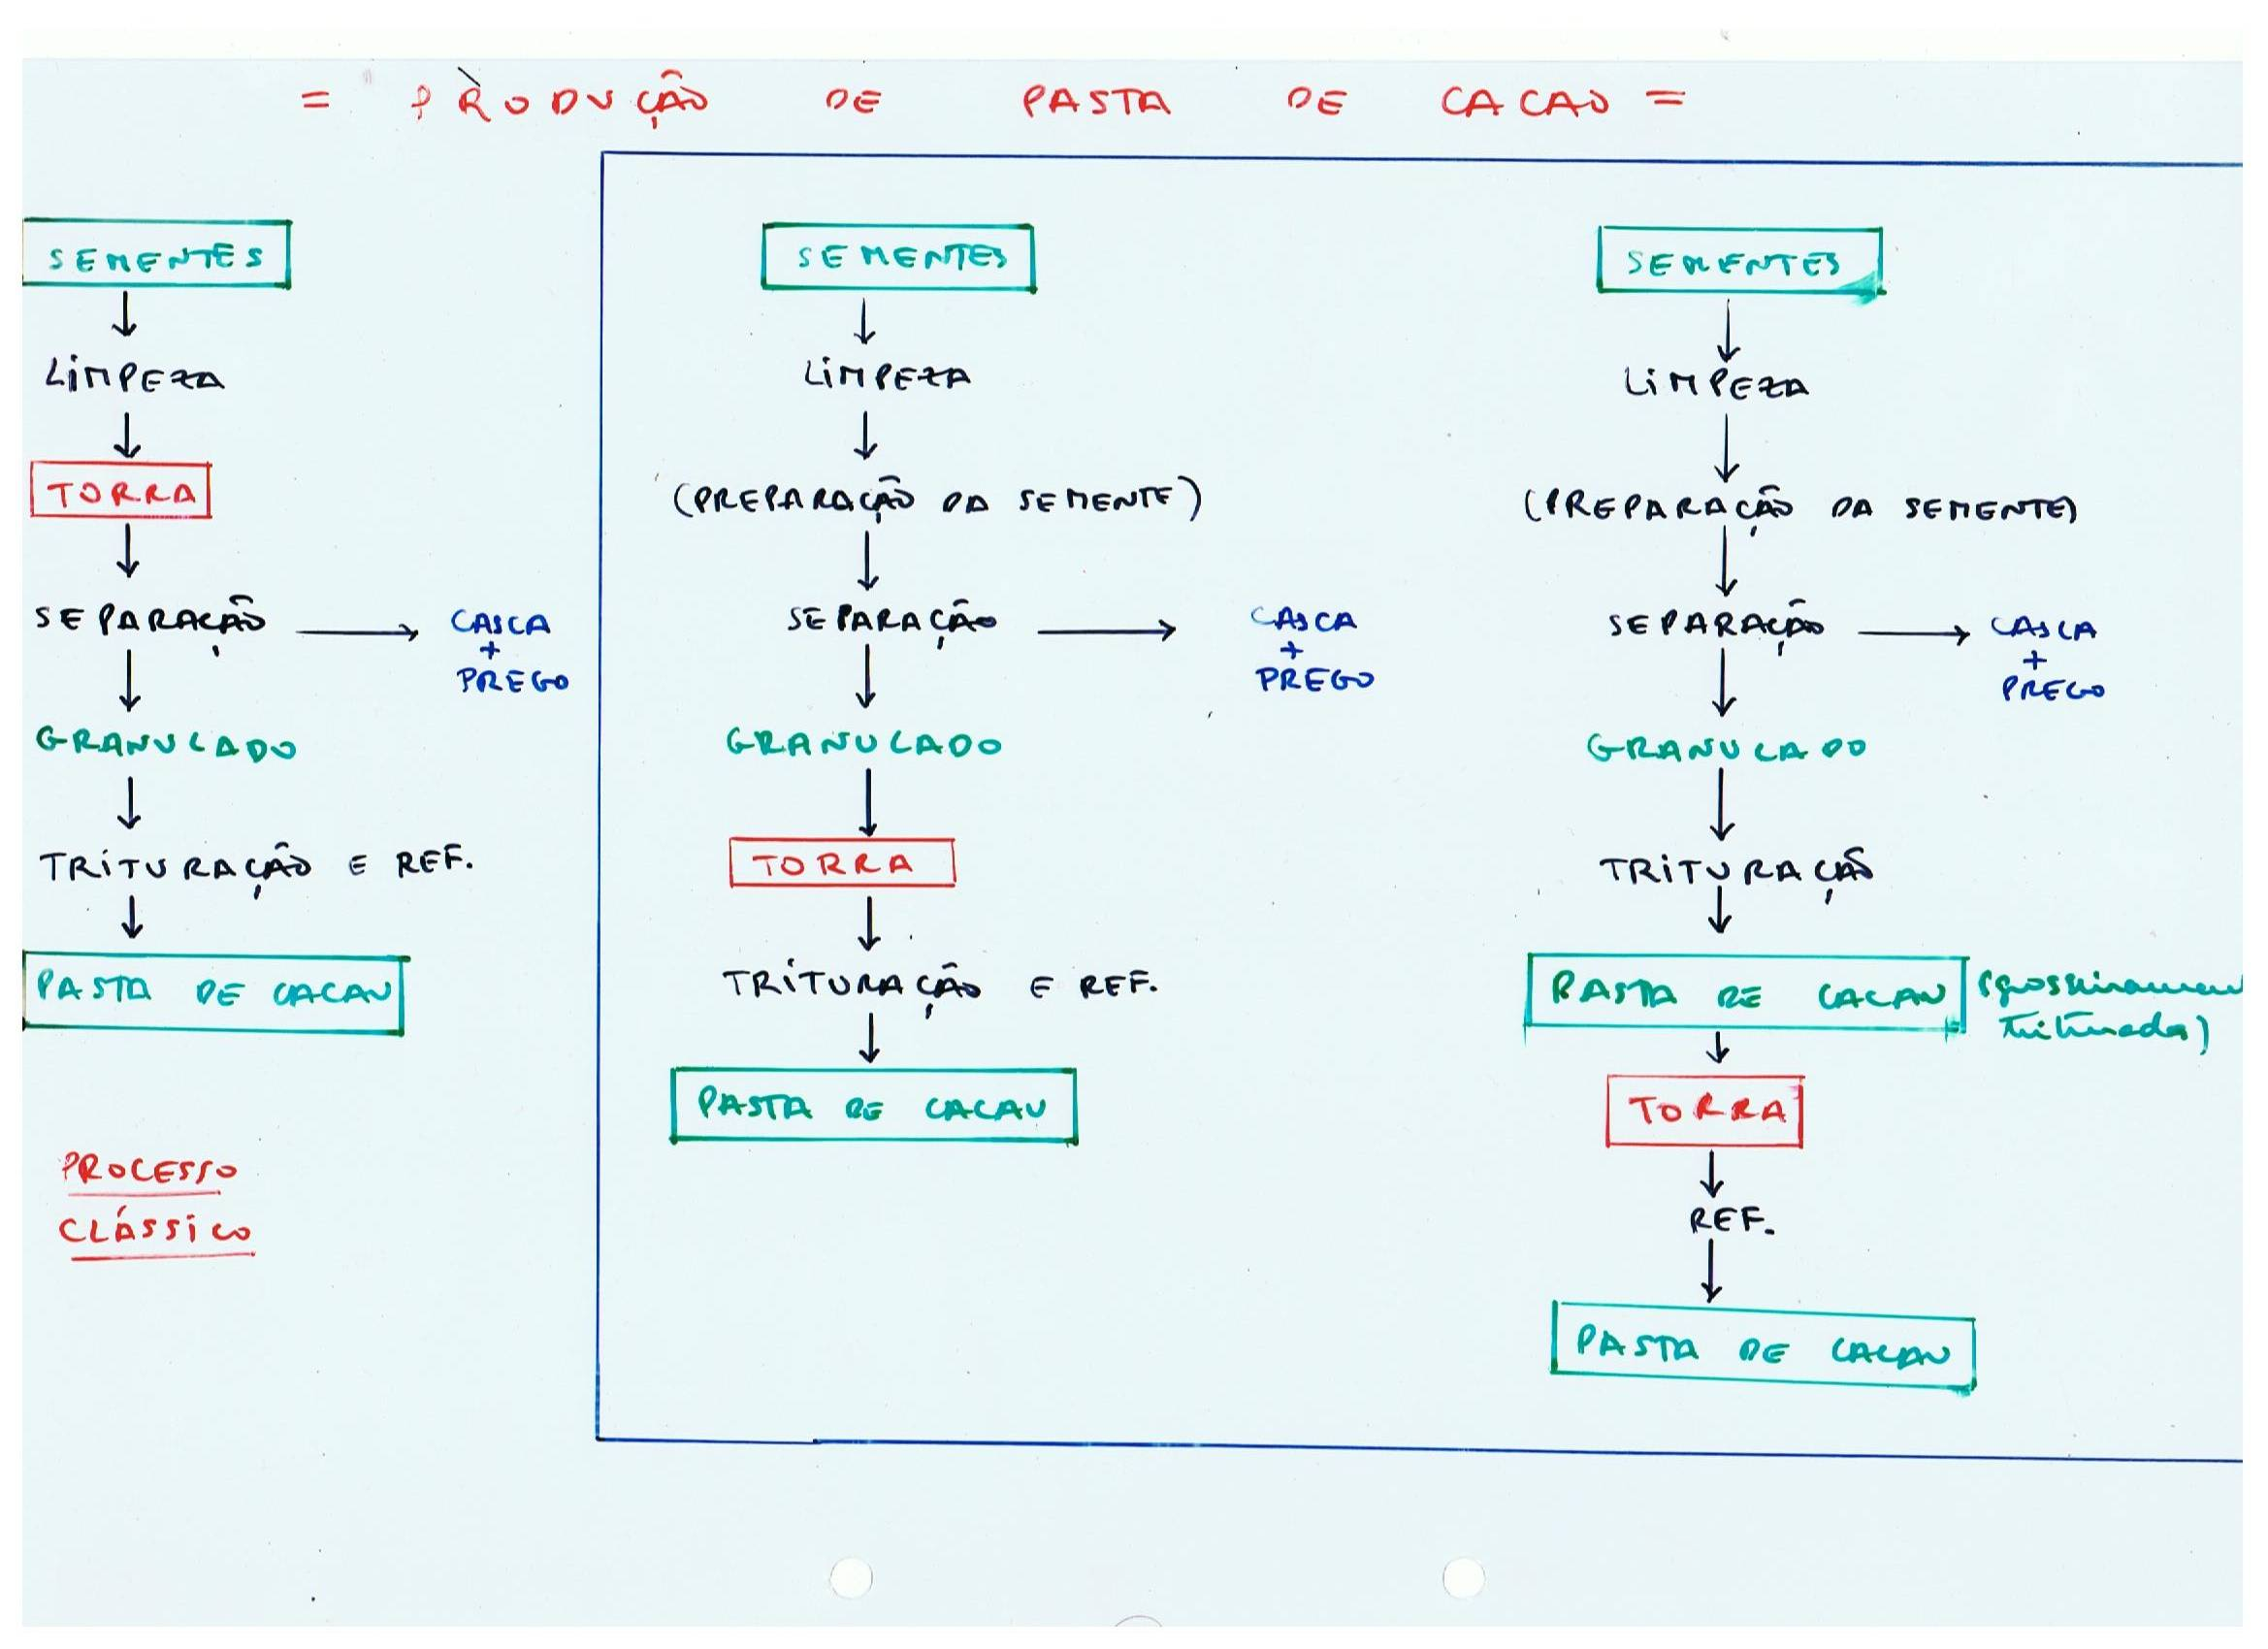 = PRODUÇÃO DE PASTA DE CACAO =
SEMENTES
LIMPEZA
TORRA
SEPARAÇÃO
CASCA
+
PREGO
GRANULADO
TRITURAÇÃO E REF.
PASTA DE CACAU
PROCESSO
CLÁSSICO
SEMENTES
LIMPEZA
(PREPARAÇÃO DA SEMENTE)
SEPARAÇÃO
CASCA
+
PREGO
GRANULADO
TORRA
TRITURAÇÃO E REF.
PASTA DE CACAU
SEMENTES
LIMPEZA
(PREPARAÇÃO DA SEMENTE)
SEPARAÇÃO
CASCA
+
PREGO
GRANULADO
TRITURAÇÃO
PASTA DE CACAU (grosseiramen
triturada)
TORRA
REF.
PASTA DE CACAU